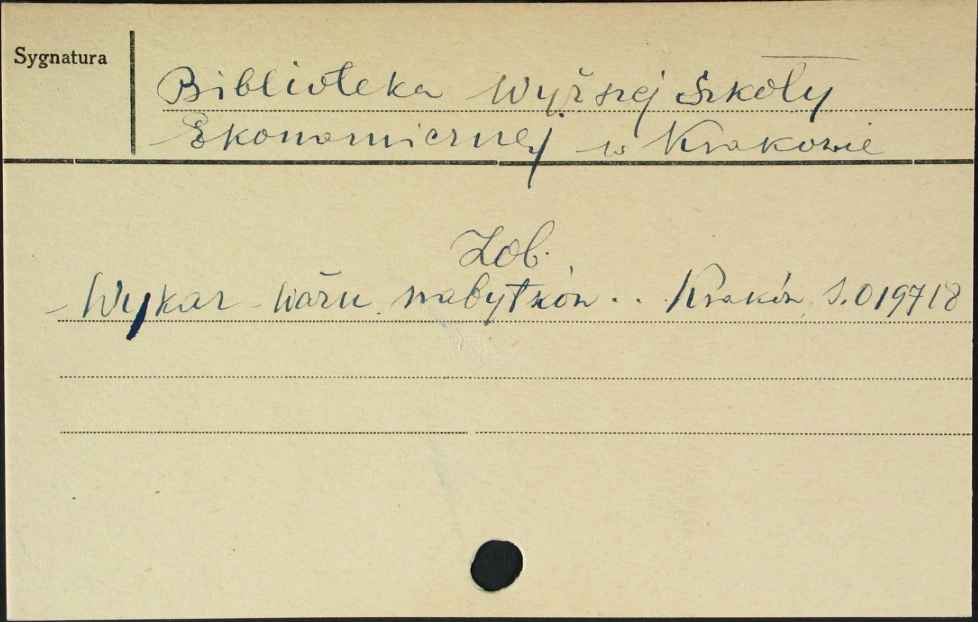 Sygnatura
Biblioteka Wyższej Szkoły
Ekonomicznej w Krakowie
Zob.
Wykaz ważn. nabytków .. Kraków S.019718